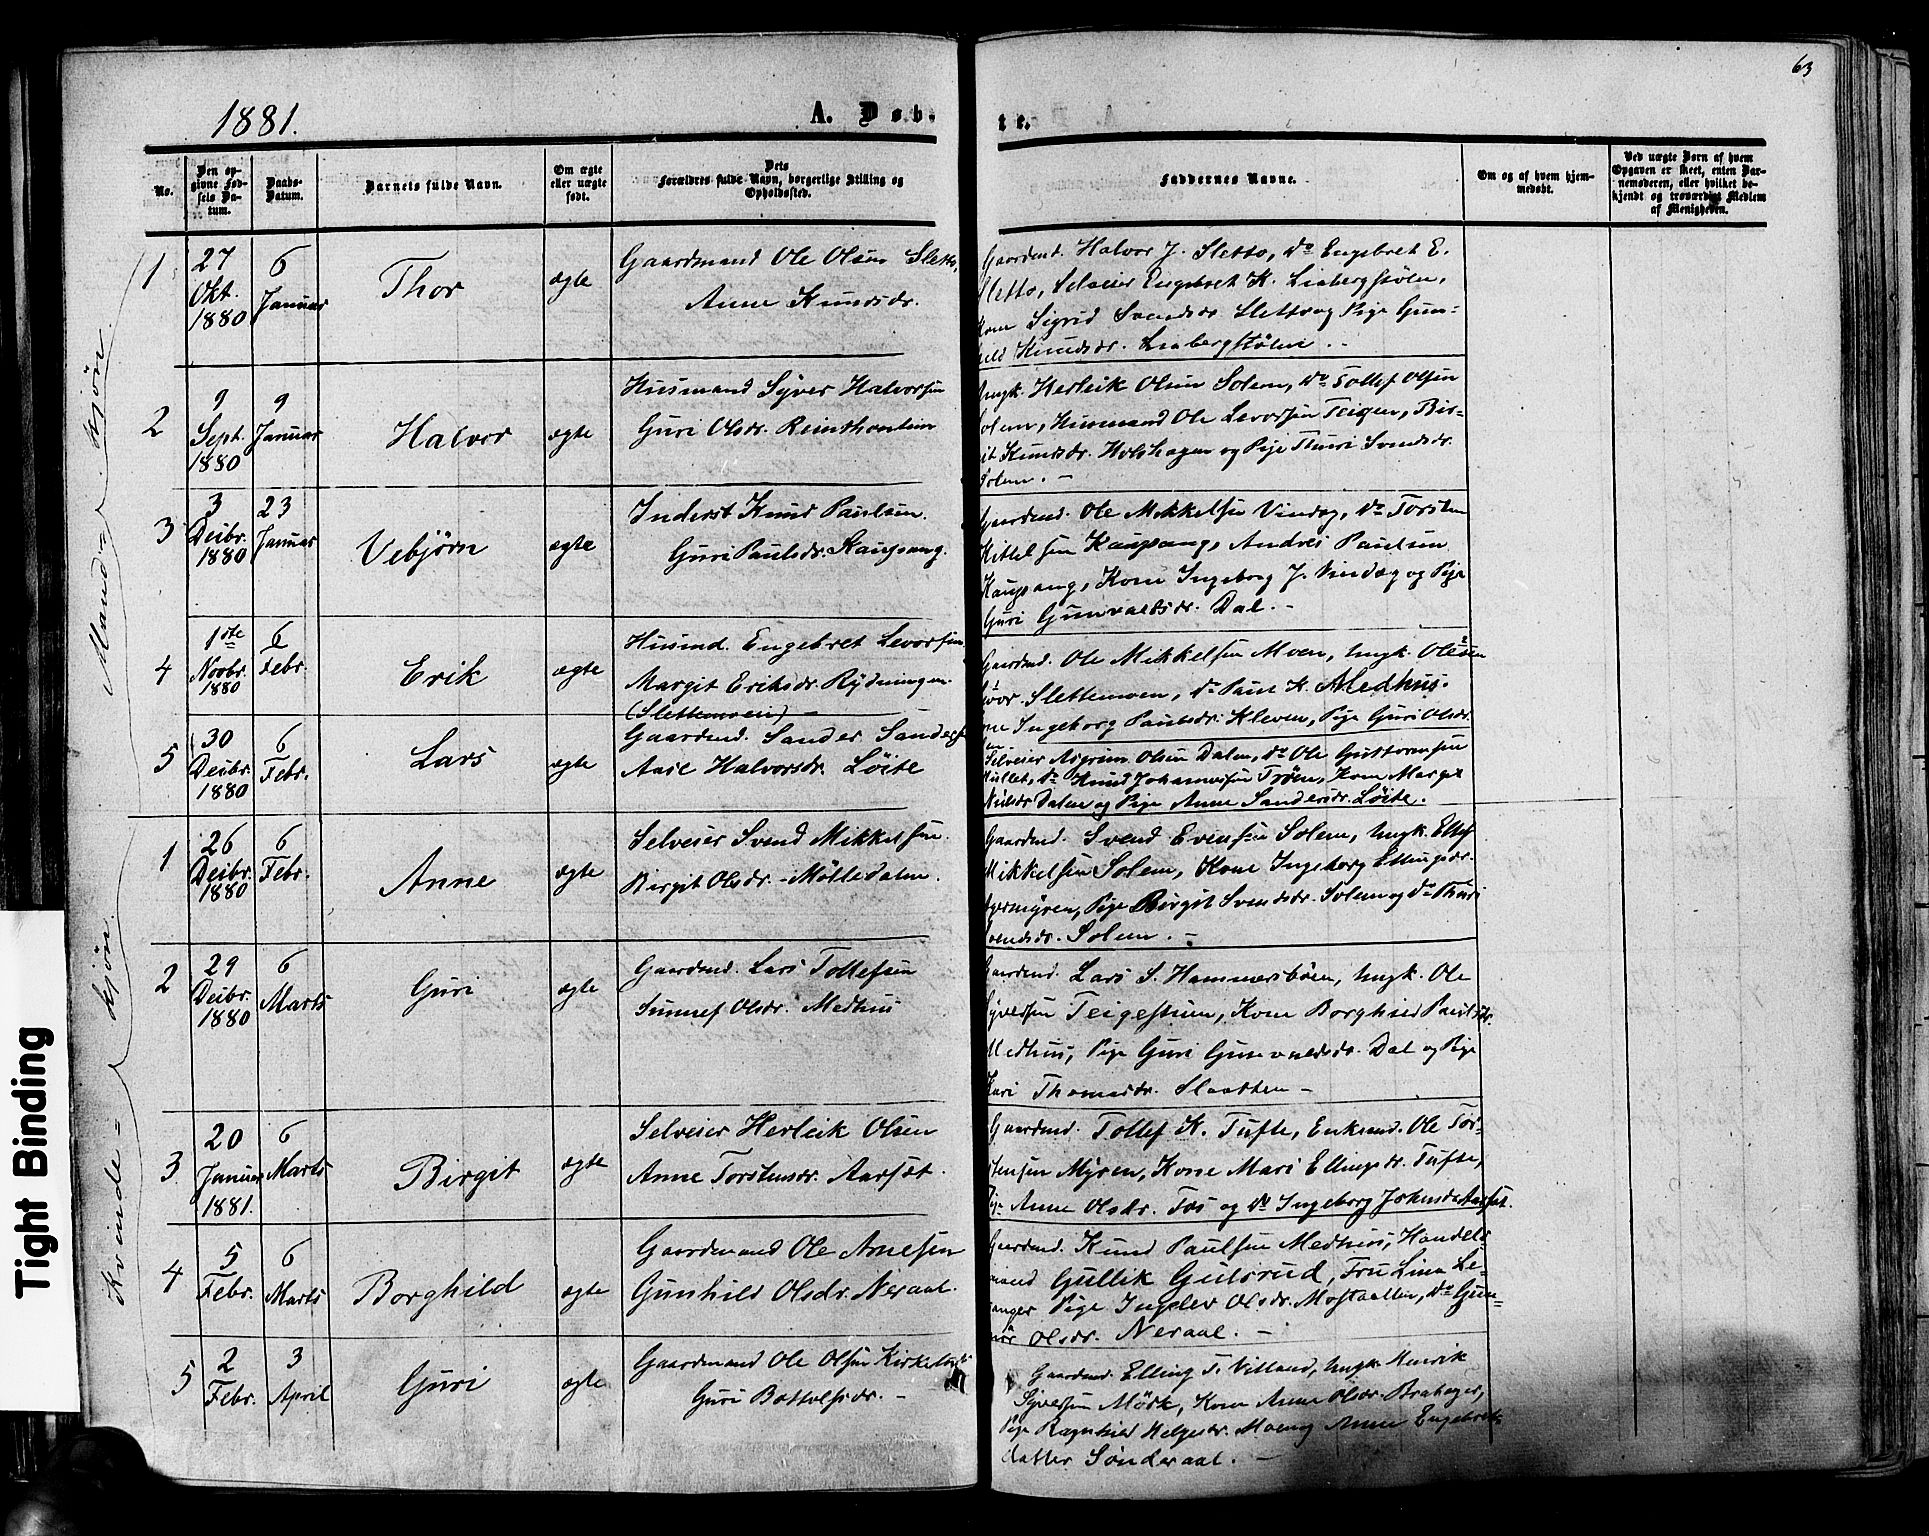 63
1881.
A. Døb-
te.
No.
Den op-
givne Fød-
sels Da-
tum.
Daabs-
Datum.
Barnets fulde Navn.
Om ægte
eller uægte
født.
Dets
Forældres fulde Navn, borgerlige Stilling og
Opholdssted.
Faddernes Navne.
Om og af hvem hjem-
medøbt.
Ved uægte Børn af hvem
Opgaven er skeet, enten Bar-
nemoderen, eller hvilket be-
kjendt og troværdigt Medlem
af Menigheden.
Mandkjøn.
1
27
Okt.
1880
6
Januar
Thor
ægte
Gaardmand Ole Olsen Sletto,
Anne Knudsdr.
Gaardmd. Halvor J. Sletto, do Engebret E.
Sletto, Selveier Engebret K. Liabergstølen,
Kone Sigrid Svendsdr. Sletto og Pige Gun-
hild Knudsdr. Liabergstølen.-
2
9
Sept.
1880
9
Januar
Halvor
ægte
Husmand Syver Halvorsen
Guri Olsdr.
Ungk. Herleik Olsen Solem, do Tollef Olsen
Solem, Husmand Ole Levorsen Teigen, Bir-
git Knudsdr. Holshagen og Pige Thuri Svendsdr.
Solem.-
3
3
Decbr.
1880
23
Januar
Vebjørn
ægte
Inderst Knud Paulsen
Guri Paulsdr. Kaupang.
Gaardmd. Ole Mikkelsen Vindeg, do Torsten
Kittelsen Kaupang, Andres Paulsen
Kaupang, Kone Ingeborg J. Vindeg og Pige
Guri Gunvaldsdr. Dal.-
4
1ste
Novbr.
1880
6
Febr.
Erik
ægte
Husmd. Engebret Levorsen
Margit Eriksdr. Rydningen.
(Slettemoen)-
Gaardmd. Ole Mikkelsen Moen, Ungk. Ole
Slettemoen, do Paul K. Medhus.
Kone Ingeborg Paulsdr. Kleven, Pige Guri Olsdr.
5
30
Decbr.
1880
6
Febr.
Lars
ægte
Gaardmd. Sander Sanders
Aase Halvorsdr. Løite
Selveier Asgrim Olsen Dalen, do Ole Guttormsen
do Knud Johannesen Trøen, Kone Margit
Nilsdr. Dalen og Pige Anne Sandersdr. Løite.
Kvindekjøn.
1
26
Decbr.
1880
6
Febr.
Anne
ægte
Selveier Svend Mikkelsen.
Birgit Olsdr. Mølledalen.
Gaardmd. Svend Evensen Solem, Ungk. Ellef
Mikkelsen Solem, Kone Ingeborg Ellingsdr.
Pige Birgit Svendsdr. Solem og do Thuri
Svendsdr. Solem.-
2
29
Decbr.
1880
6
Marts
Guri
ægte
Gaardmd. Lars Tollefsen
Sunnef Olsdr. Medhus
Gaardmd. Lars S. Hammersbøen, Ungk. Ole
Syversen Teigestuen, Kone Borghild Paulsdr.
Medhus, Pige Guri Gunvaldsdr. Dal og Pige
Kari Thomasdr. Slaatten-
3
20
Januar
1881.
6
Marts
Birgit
ægte
Selveier Herleik Olsen
Anne Torstensdr. Aarset.
Gaardmd. Tollef K. Tufte, Enkemd. Ole Tor-
stensen Myren, Kone Mari Ellingsdr. Tufte,
Pige Anne Olsdr. Foss og do Ingeborg Johnsdr Aarset.
4
5
Febr.
6
Marts
Borghild
ægte
Gaardmand Ole Arnesen
Gunhild Olsdr. Neraal.
Gaardmd. Knud Paulsen Medhus, Handels-
mand Gullik Gulsrud, Fru Lina Le-
Pige Ingelev Olsdr. do Gun-
nor Olsdr. Neraal.-
5
2
Febr.
3
April
Guri
ægte
Gaardmand Ole Olsen
Guri Bottolfsdr.-
Gaardmd. Elling T. Villand, Ungk. Henrik
Syversen Mørk, Kone Anne Olsdr.
Pige Ragnhild Helgesdr. Moen og Anne Engebrets-
datter Sønderaal.-
Tight Binding